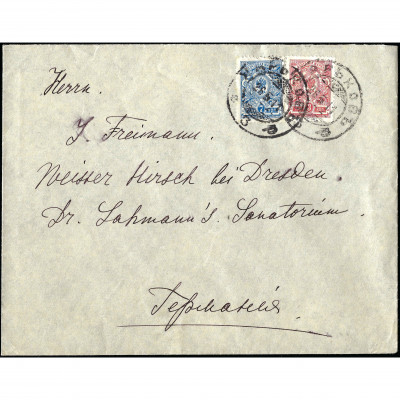 Herrn.
J. Freimann.
Weisser Hirsch bei Dresden.
Dr. Lahmann's Sanatorium.
Германія